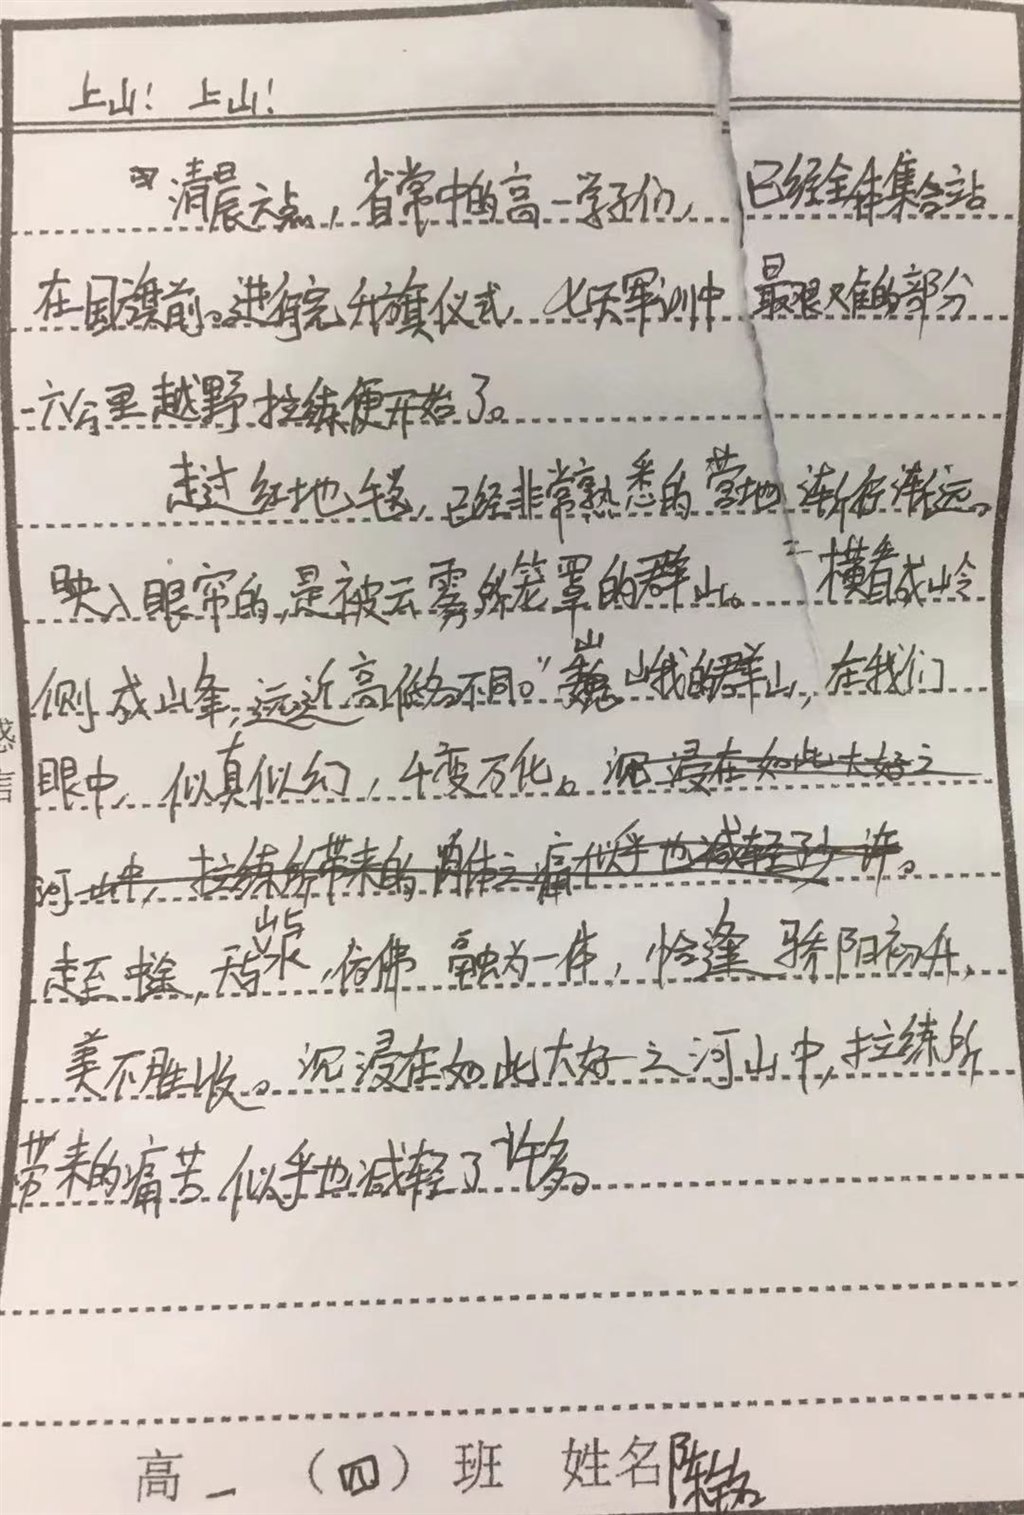 上山！ 上山！
清晨六点，省常中的高一学子们，已经全体集合站
在国旗前。进行完升旗仪式，七天军训中最艰难的部分
-六公里越野拉练便开始了。
走过红地毯，已经非常熟悉的营地渐行渐远。
映入眼帘的，是被云雾所笼罩的群山。“横看成岭
侧成山峰，远近高低各不同。”巍峨的群山，在我们
眼中，似真似幻，千变万化。沉浸在如此大好之
河山中，拉练所带来的肉体之痛似乎也减轻了少许。
走至中途，天与水，仿佛融为一体，恰逢骄阳初升，
美不胜收。沉浸在如此大好之河山中，拉练所
带来的痛苦似乎也减轻了许多。
感言
高一（四）班 姓名陈